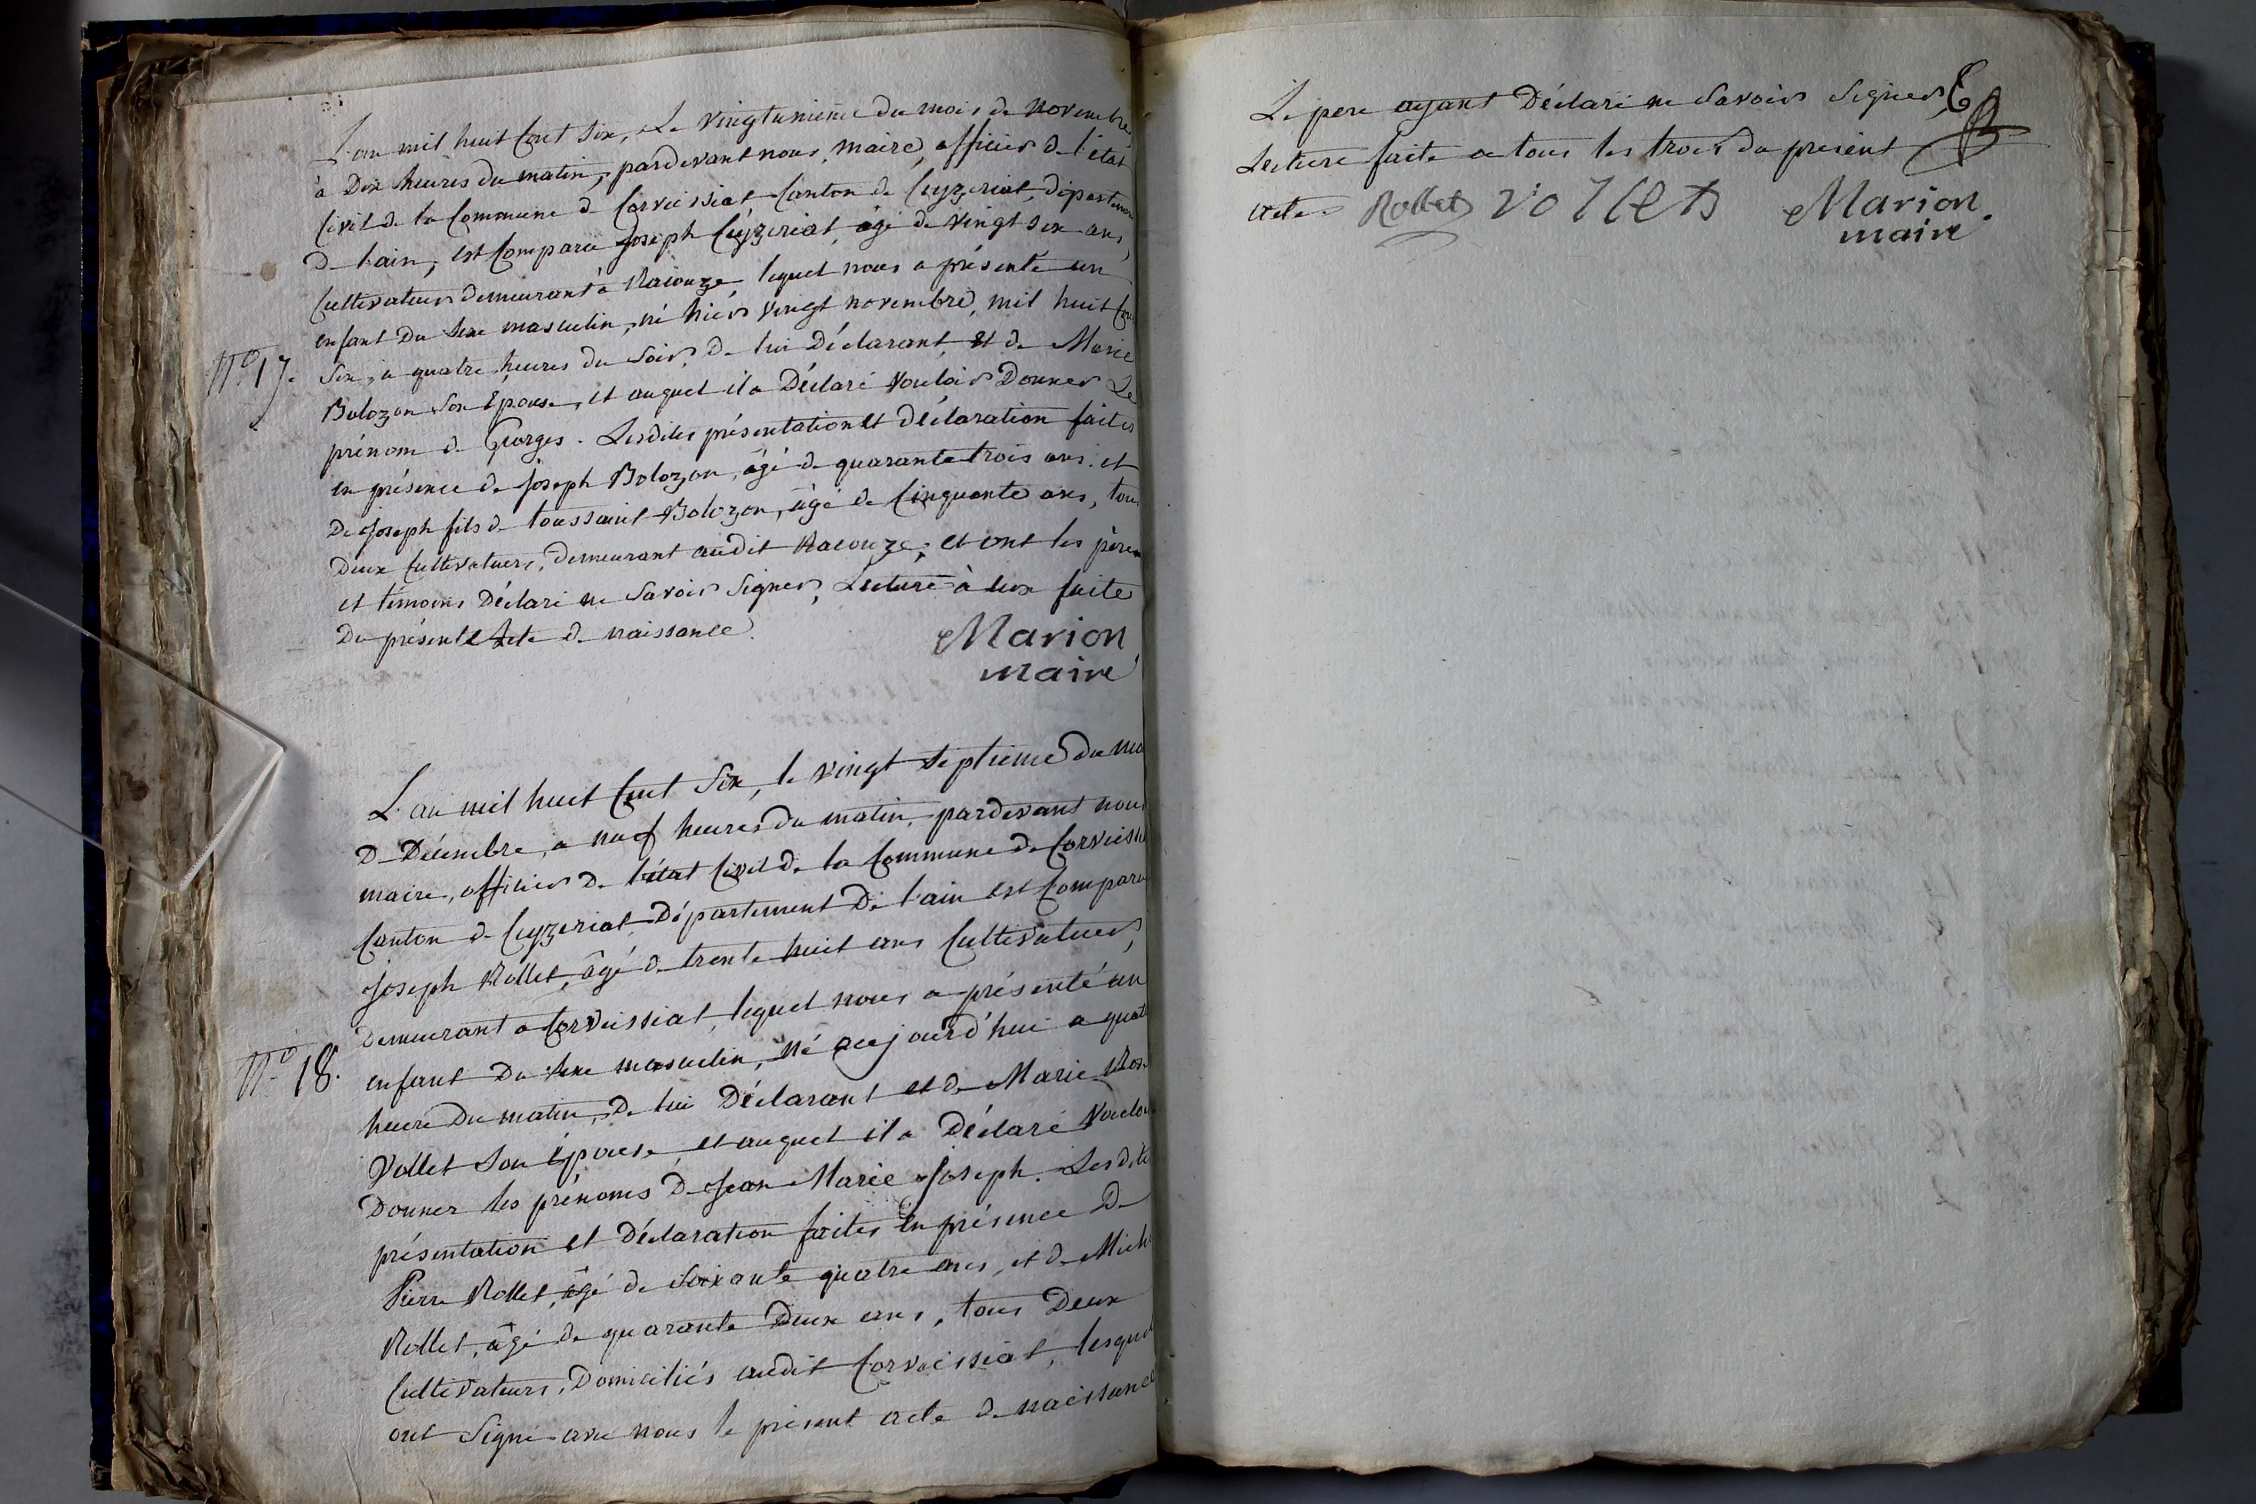 L'an mil huit Cent Six, Le vingtunieme du mois de Novembre
à Dix heures du matin, pardevant nous, maire, officier de l'état
Civil de la Commune de Corveissiat Canton de Ceyzeriat, départeme
de l'ain, est Comparu Joseph Ceÿzeriat, âgé de vingt six ans,
Cultivateur demeurant à Racouze, lequel nous a présenté un
enfant du sexe masculin, né hier vingt novembre, mil huit Cen
N.º 17.
Six, à quatre heures du Soir, de lui Déclarant, et de Marie
Bolozon Son Epouse, et auquel il a Déclaré Vouloir Donner Le
prénom de Georges. Lesdites présentation et déclaration faites
en présence de Joseph Bolozon, âgé de quarante trois ans, et
De Joseph fils de toussaint Bolozon, âgé de Cinquante ans, tou
Deux Cultivateurs, demeurant audit Racouze; et ont les père
et témoins Déclaré ne Savoir Signer, Lecture à eux faite
Du présent Acte de naissance.
Marion
maire
L'an mil huit Cent Six, le vingt Septieme du mo
De Décembre, a neuf heures du matin, pardevant nou
maire, officier de l'état Civil de la Commune de Corveissi
Canton de Ceyzeriat, Département De l'ain est Comparu
Joseph Rollet, âgé de trente huit ans Cultivateur,
Demeurant a Corveissiat, lequel nous a présenté un
N.º 18.
enfant Du Sexe masculin, né aujourd'hui a quat
heure Du matin, De lui Déclarant et de Marie Rose
Vollet Son Epouse, et auquel il a Déclaré Voulo
Donner les prénoms De Jean Marie Joseph. Lesdite
présentation et Déclaration faites en présence De
Pierre Rollet, âgé de Soixante quatre ans, et de Mich
Rollet, âgé de quarante Deux ans, tous Deux
Cultivateurs, Domiciliés audit Corveissiat, lesquel
ont Signé avec nous le présent acte de naissance
Le pere ayant Déclaré ne Savoir Signer, Et
Lecture faite a tous les trois du present
acte. Rollet vollet Marion
maire